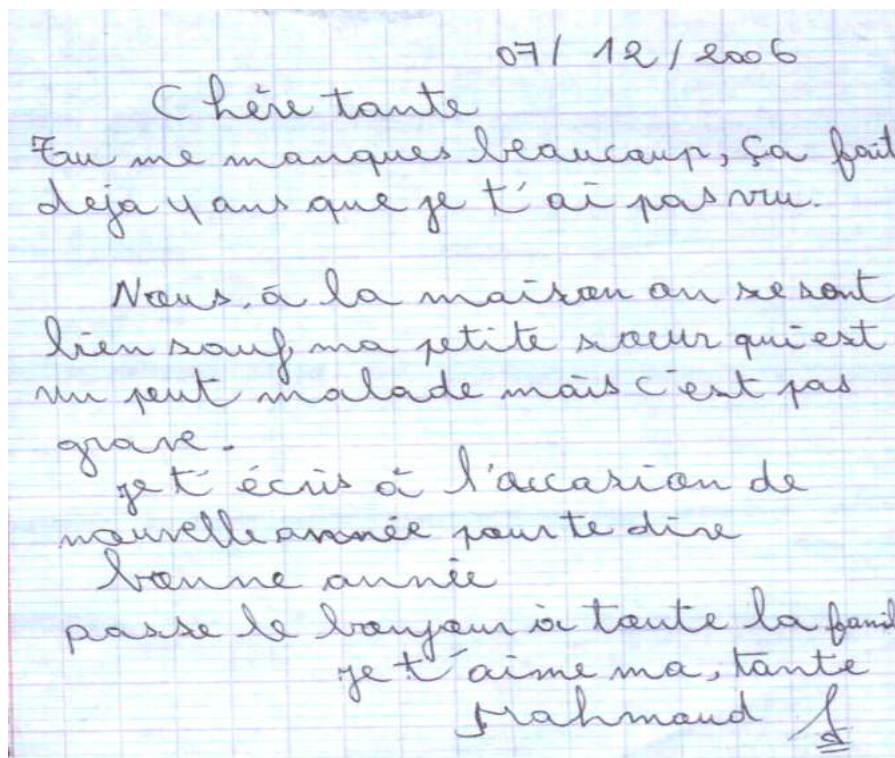 07/ 12 / 2006
Chère tante
Tu me manques beaucoup, ça fait
deja 4 ans que je t'ai pas vu.
Nous, à la maison on se sont
bien sauf, ma petite sœur qui est
un peut malade mais c'est pas
grave.
je t'écris à l'occasion de
nouvelle année pour te dire
bonne année
passe le bonjour à toute la famil
je t'aime ma, tante
Mahmoud